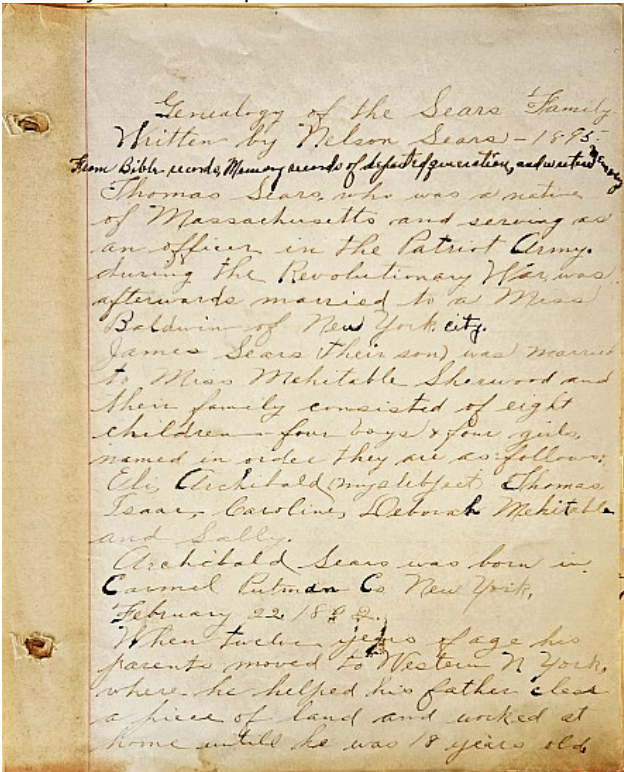 Genealogy of the Sears Family
Written by Nelson Sears - 1895.
From Bible records, Memory records of departed generations, and
Thomas Sears, who was a native
of Massachusetts and serving as
an officer in the Patriot Army.
during the Revolutionary War, was
afterwards married to a Miss
Baldwin of New York city.
James Sears (their son) was married
to Miss Mehitable Sherwood and
their family consisted of eight
children - four boys & four girls,
named in order they are as follows:
Eli, Archibald (my subject) Thomas
Isaac, Caroline, Deborah Mehitable
and Sally.
Archibald Sears was born in
Carmel Putman Co New York,
February 22 18
When twelve years of age his
parents moved to Western N York,
where he helped his father clear
a piece of land and worked at
home untill he was 18 years old